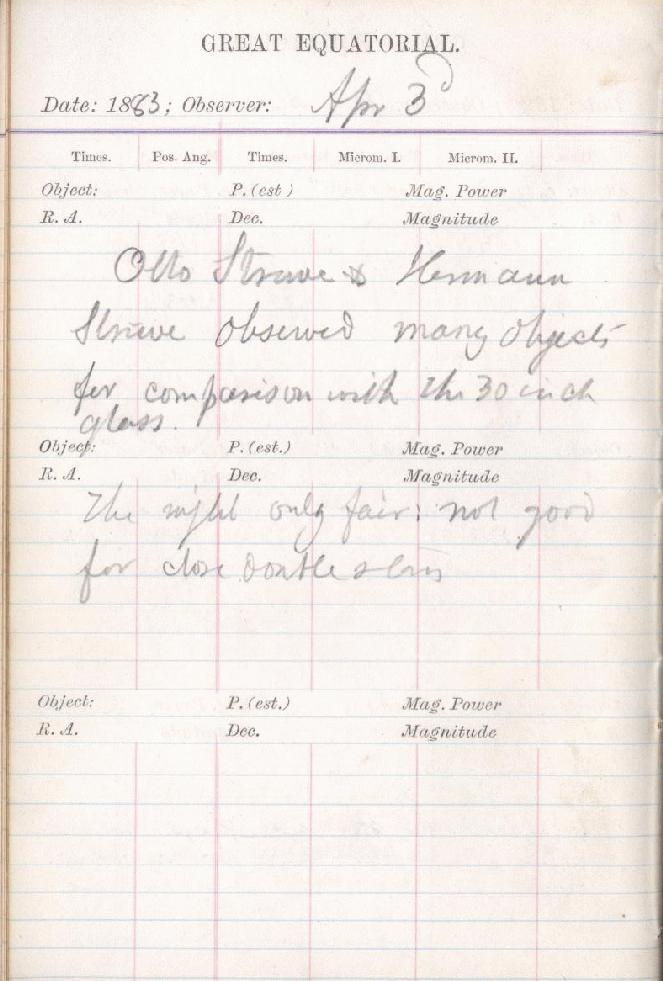 GREAT EQUATORIAL.
Date: 1883; Observer: Apr 3d
Times. Pos. Ang. Times. Microm. I. Microm. II.
Object: P. (est) Mag. Power
R. A. Dec. Magnitude
Otto Struve & Hermann
Struve observed many objects
for comparison with the 30 inch
glass.
Object: P. (est.) Mag. Power
R. A. Dec. Magnitude
The night only fair: not good
for close double stars
Object: P. (est.) Mag. Power
R. A. Dec. Magnitude